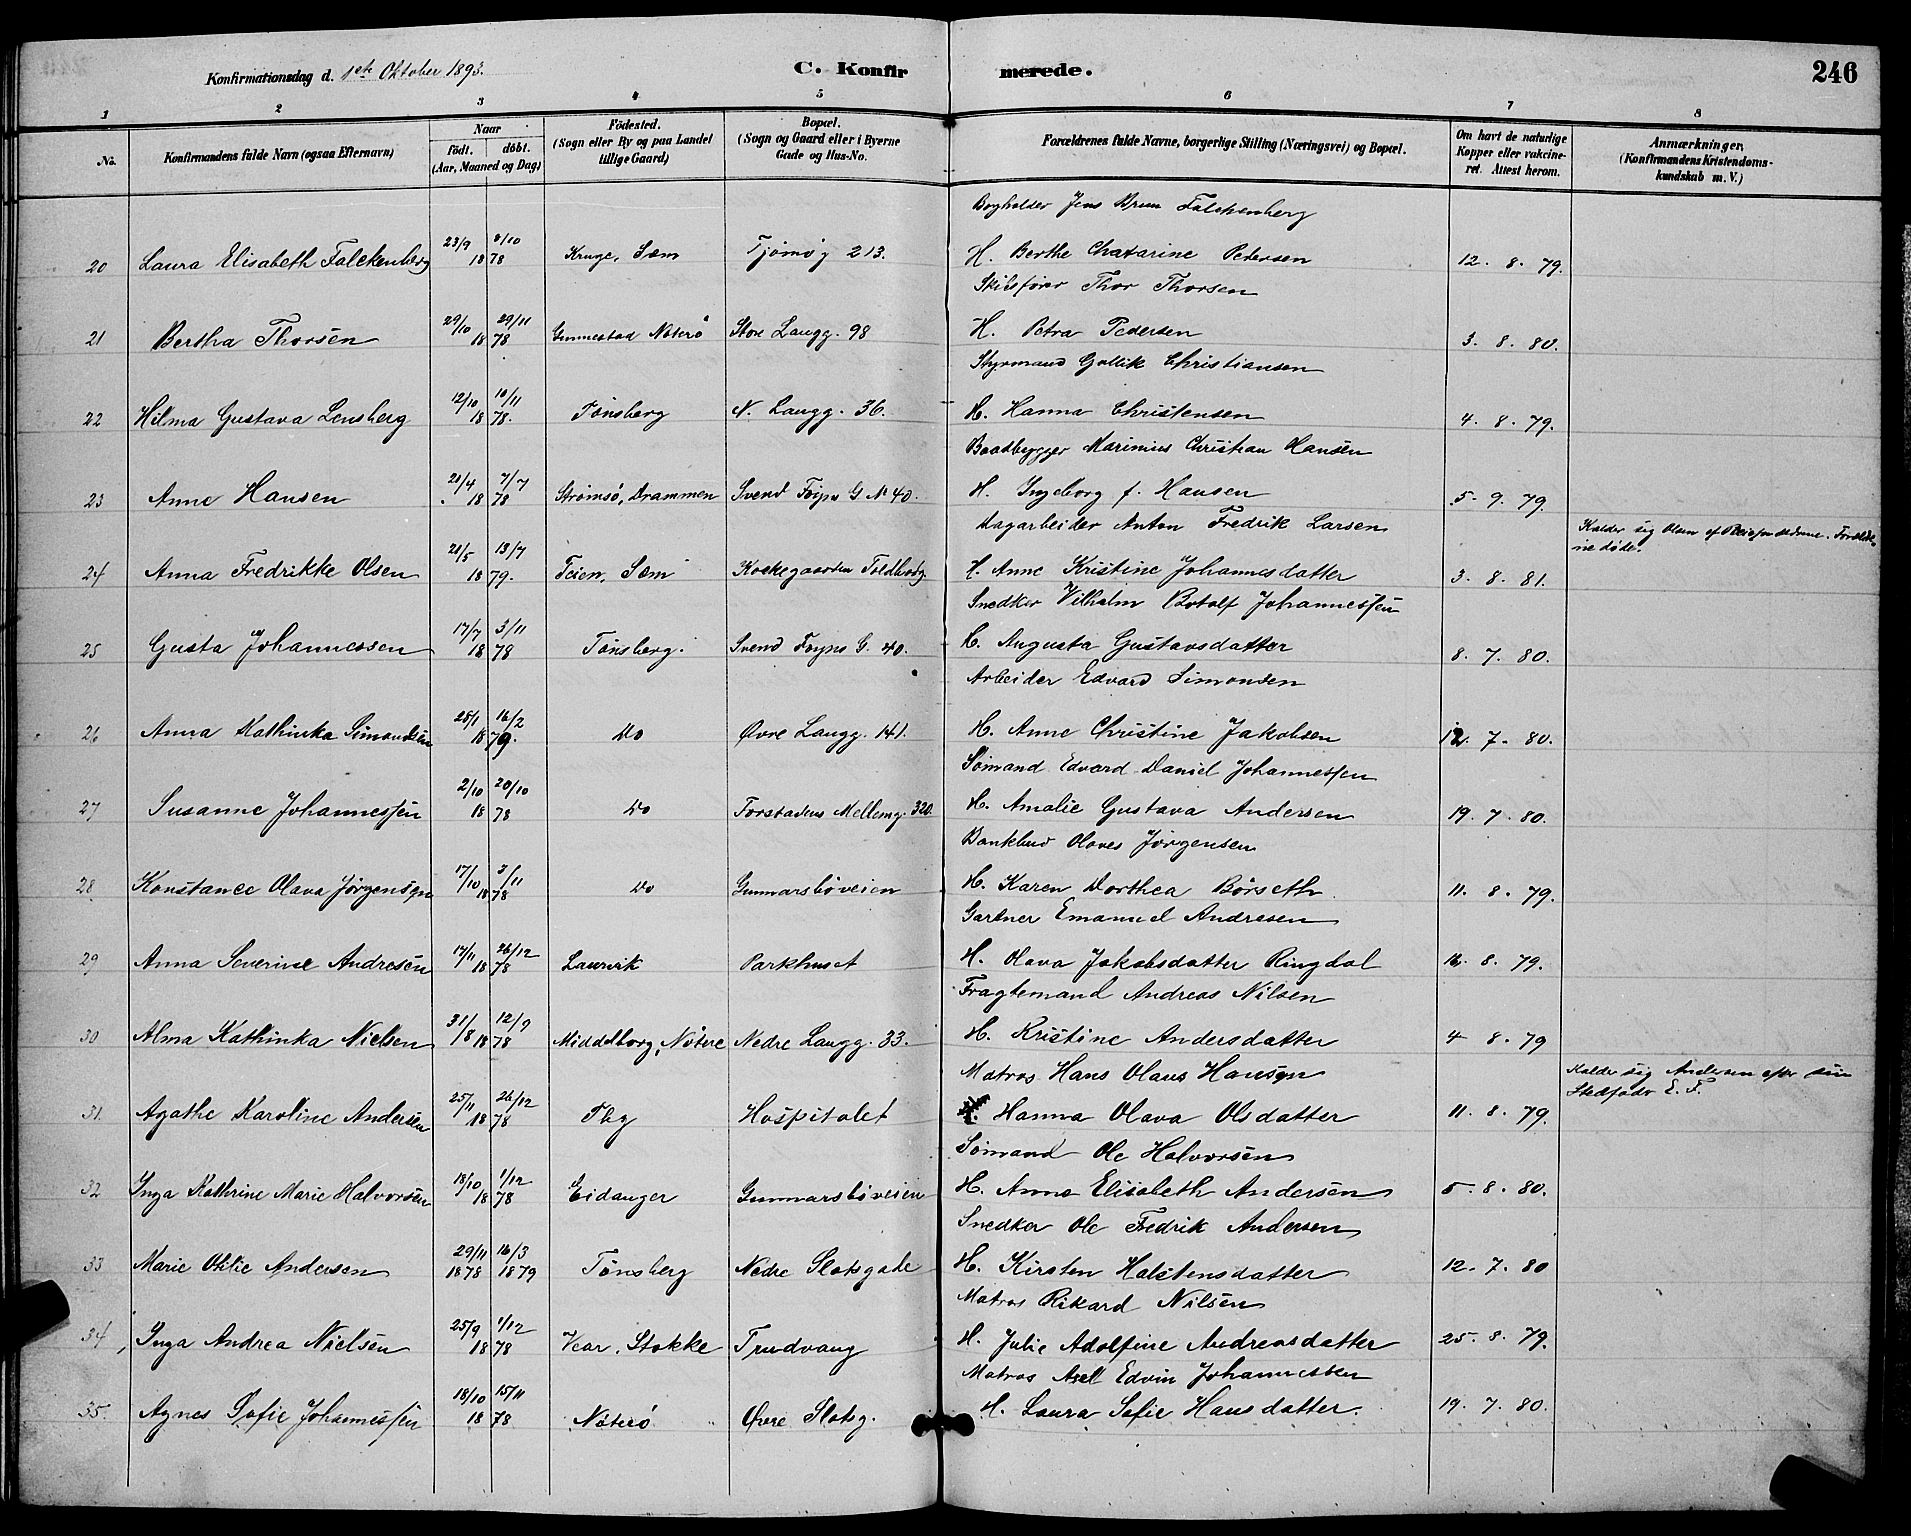 Konfirmationsdag d. 1ste Oktober 1893.
C. Konfirmerede.
246
1 2 3 4 5 6 7 8
No. Konfirmandens fulde Navn (ogsaa Efternavn) Naar födt. döbt. (Aar, Maaned og Dag) Födested. (Sogn eller By og paa Landet tillige Gaard) Bopæl. (Sogn og Gaard eller i Byerne Gade og Hus-No. Forældrenes fulde Navne, borgerlige Stilling (Næringsvei) og Bopæl. Om havt de naturlige Kopper eller vakcineret. Attest herom. Anmærkninger, (Konfirmandens Kristendomskundskab m. V.)
Bogholder Jens Brun Falckenberg
20 Laura Elisabeth Falckenberg 23/9 8/10 1878 Kruge, Sem Tjømøg 213. H. Berthe Chatarine Petersen 12. 8. 79.
Skibsfører Thor Thorsen
21 Bertha Thorsen 29/10 29/11 1878 Gunnestad Nøterø Store Langg. 98 H. Petra Pedersen 3. 8. 80.
Styrmand Gullik Christiansen
22 Hilma Gustava Lensberg 12/10 10/11 1878. Tønsberg N. Langg. 36. H. Hanna Christensen 4. 8. 79.
Baadbygger Marinius Christian Hansen
23 Anne Hansen 21/4 7/7 1878 Strømsø, Drammen Svend Foyns G No 40. H. Ingeborg f. Hansen 5. 9. 79.
Dagarbeider Anton Fredrik Larsen
Kalder sig Olsen ef. Pleieforældrene. Forældrene døde.
24 Anna Fredrikke Olsen 21/5 13/7 1879. Teien, Sem Kaskegaarden Toldbodg. H. Anne Kristine Johannesdatter 3. 8. 81.
Snedker Vilhelm Botolf Johannessen
25 Gusta Johannessen 17/7 3/11 1878 Tønsberg. Svend Foyns G. 40. H. Augusta Gustavsdatter 8. 7. 80.
Arbeider Edvard Simonsen
26 Anna Kathinka Simonsen 25/1 16/2 1879. Do Øvre Langg. 141. H. Anne Christine Jakobsen 12. 7. 80.
Sømand Edvard Daniel Johannessen
27 Susanne Johannessen 2/10 20/10 1878 Do Forstadens Mellemg. 320. H. Amalie Gustava Andersen 19. 7. 80.
Bankbud Olaves Jørgensen
28 Konstance Olava Jørgensen 17/10 3/11 1878 Do Gunnarsbøveien H. Karen Dorthea Børseth 11. 8. 79.
Gartner Emanuel Andresen
29 Anna Severine Andresen 17/11 26/12 1878 Laurvik Parkhuset H. Olava Jakobsdatter Ringdal 16. 8. 79.
Fragtemand Andreas Nilsen
30 Alma Kathinka Nielsen 31/8 12/9 1878 Middelborg, Nøterø Nedre Langg. 33. H. Kristine Andersdatter 4 8. 79
Matros Hans Olaus Hansen
Kalder sig Andersen efter sin Stedfader E. F.
31. Agathe Karoline Andersen 25/11 26/12 1878 Tbg Hospitalet H. Hanna Olava Olsdatter 11. 8. 79.
Sømand Ole Halvorsen
32 Inga Kathrine Marie Halvorsen 18/10 1/12 1878 Eidanger Gunnarsbøveien H. Anna Elisabeth Andersen 5. 8. 80.
Snedker Ole Fredrik Andersen
33 Marie Otilie Andersen 29/11 1878 16/3 1879 Tønsberg Nedre Slotsgade H. Kirsten Halstensdatter 12. 7. 80
Matros Rikard Nilsen
34 Inga Andrea Nielsen 25/9 1/12 1878 Vear, Stokke Trudvang H. Julie Adolfine Andreasdatter 25. 8. 79.
Matros Axel Edvin Johannessen
35. Agnes Sofie Johannessen 18/10 15/11 1878 Nøterø Øvre Slotsg. H. Laura Sofie Hansdatter. 19. 7. 80.